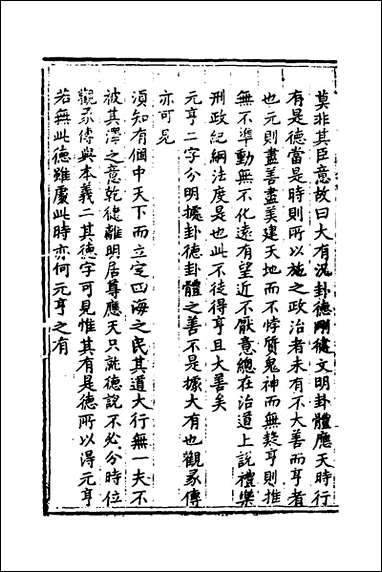 莫非其臣意故曰大有況卦德剛健文明卦體應天時行
有是德當是時則所以施之政治者未有不大善而亨者
也元則盡善盡美建天地而不悖質鬼神而無疑亨則推
無不準動無不化遠有望近不厭意總在治道上說禮樂
刑政紀綱法度是也此不徒得亨且大善矣
元亨二字分明據卦德卦體之善不是據大有也觀彖傳
亦可見
須知有個中天下而立定四海之民其道大行無一夫不
被其澤之意乾健離明居尊應天只就德說不必分時位
觀彖傳與本義二其德字可見惟其有是德所以得元亨
若無此德雖處此時亦何元亨之有